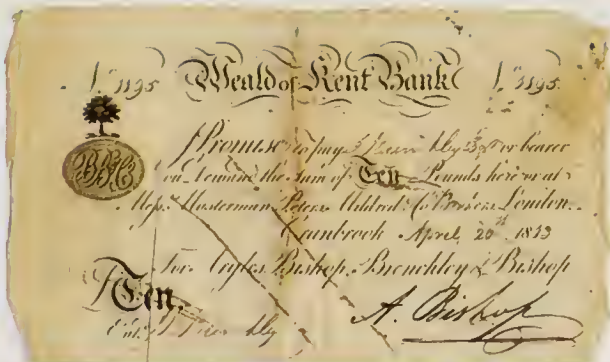 No 1195 Weald of Kent Bank No 1195
I Promise to pay or bearer
on Demand the Sum of Ten Pounds here or at
Messrs Masterman Peters Mildred & Co Bankers London.
Cranbrook April 20th 1813
For Argles Bishop, Brenchley & Bishop
£Ten
Entd A. Bishop